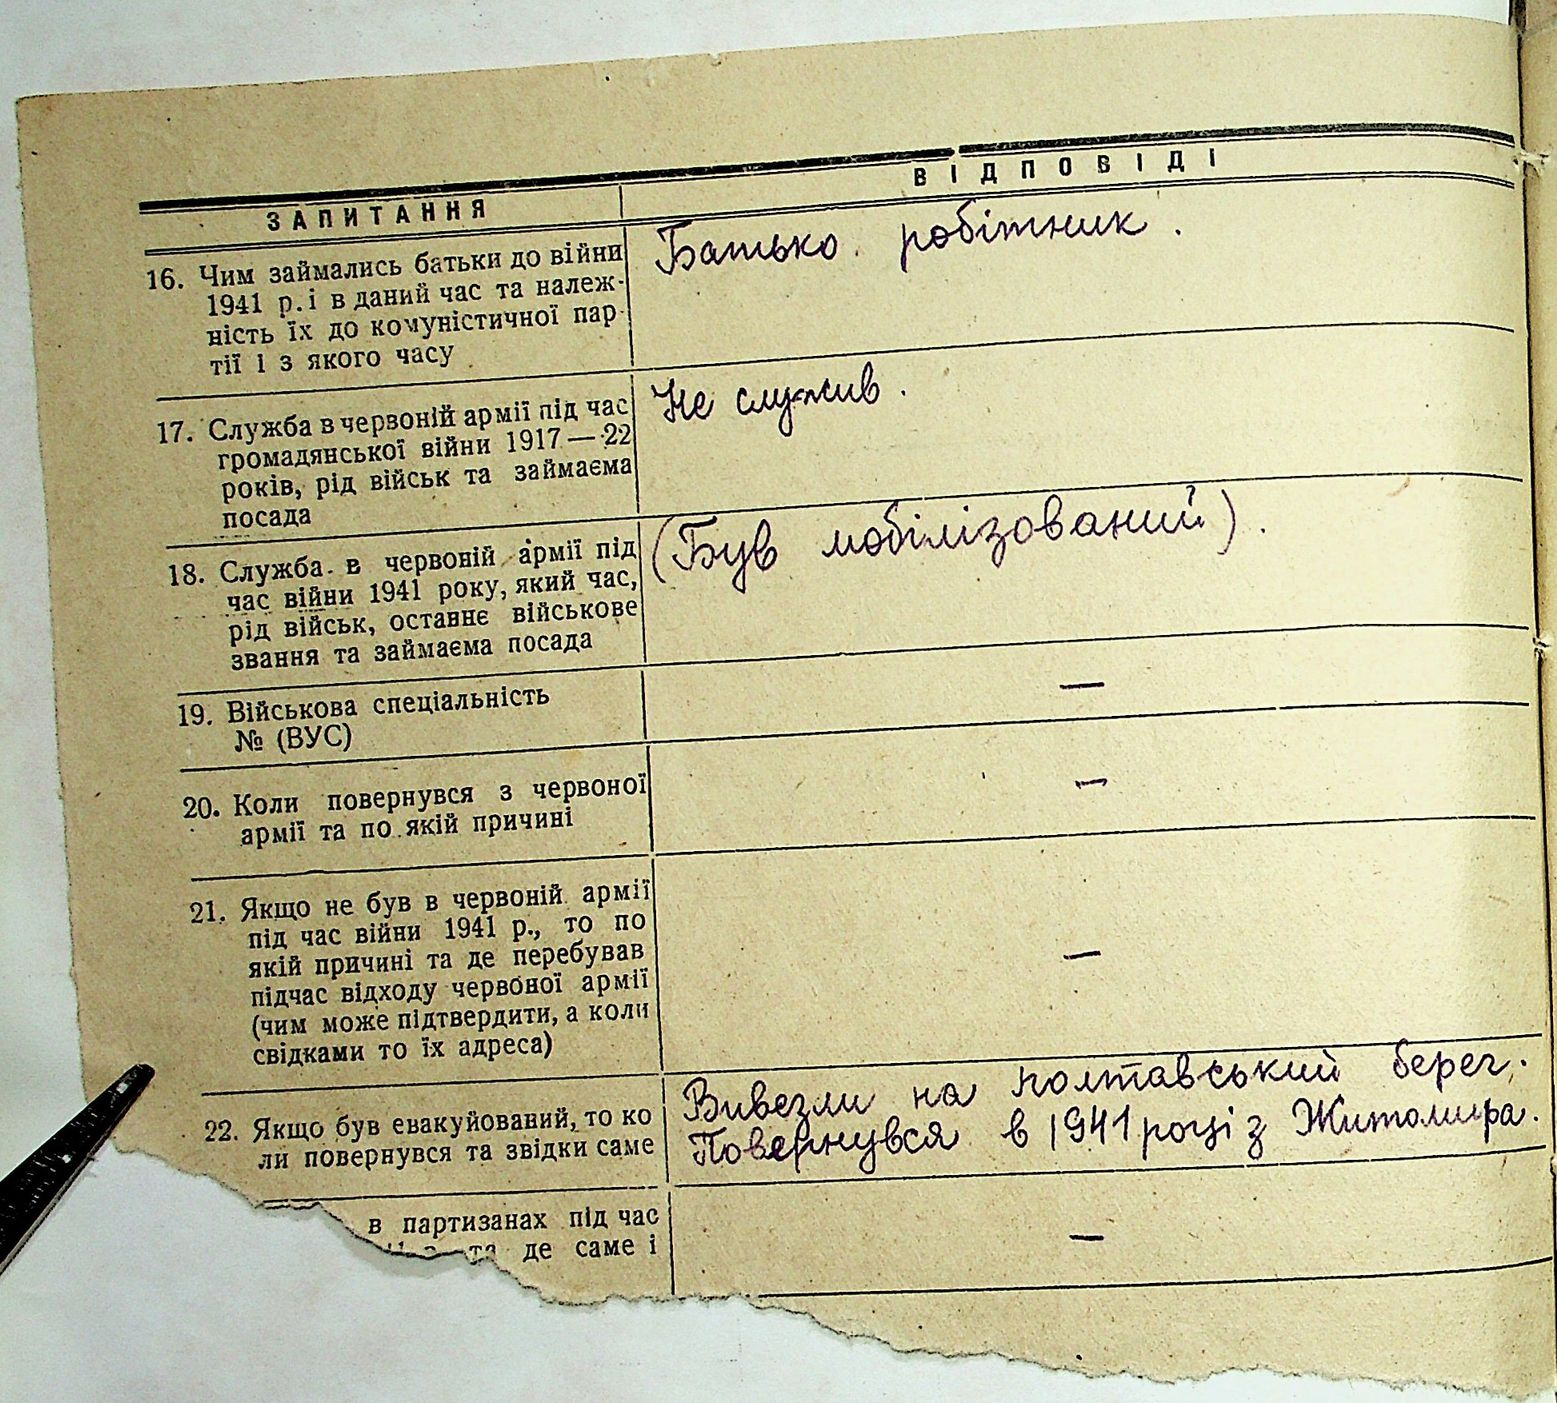 ЗАПИТАННЯ
ВІДПОВІДІ
16. Чим займались батьки до війни
1941 р. і в даний час та належ-
ність їх до комуністичної пар-
тії і з якого часу
Батько робітник.
17. Служба в червоній армії під час
громадянської війни 1917—22
років, рід військ та займаєма
посада
Не служив.
18. Служба в червоній армії під
час війни 1941 року, який час,
рід військ, останнє військове
звання та займаєма посада
(Був мобілізований).
19. Військова спеціальність
№ (ВУС)
—
20. Коли повернувся з червоної
армії та по якій причині
—
21. Якщо не був в червоній армії
під час війни 1941 р., то по
якій причині та де перебував
підчас відходу червоної армії
(чим може підтвердити, а коли
свідками то їх адреса)
—
22. Якщо був евакуйований, то ко
ли повернувся та звідки саме
Вивезли на полтавський берег.
Повернувся в 1941 році з Житомира.
в партизанах під час
та де саме і
—